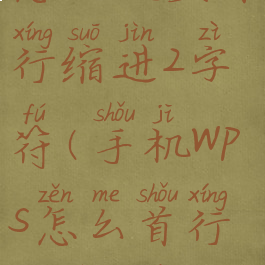 xíng suō jìn zì
行缩进2字
fú shǒu jī
符(手机WP
zěn me shǒu xíng
S怎么首行